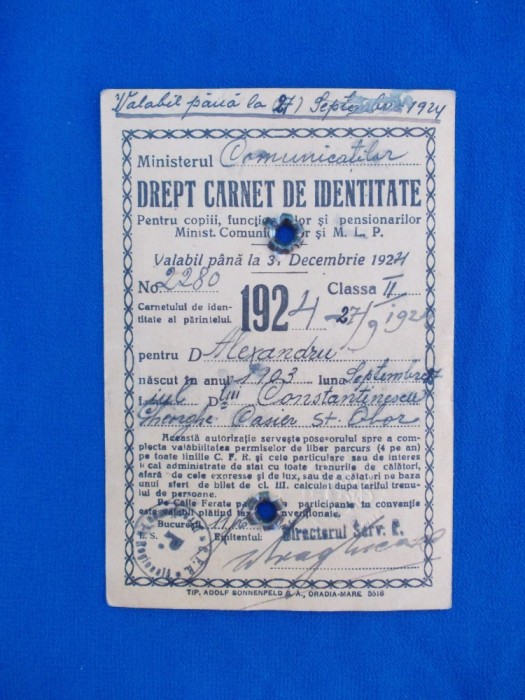 Valabil până la 27 Septembrie 1924
Ministerul Comunicatilor
DREPT CARNET DE IDENTITATE
Pentru copiii, funcționarilor și pensionarilor
Minist. Comunic lor și M. L. P.
Valabil până la 31 Decembrie 1924
No. 2280 Classa II
Carnetului de iden-
titate al părintelui.
1924 27/9 192
pentru D Alexandru
născut în anul 1903 luna Septembre 27
iul D Constantinescu
Gheorghe Casier St. Obor
Această autorizație servește poseorului spre a com-
plecta valabilitatea permiselor de liber parcurs (4 pe an)
pe toate liniile C. F. R. și cele particulare sau de interes
cal administrate de stat cu toate trenurile de călători,
afară de cele expresse și de lux, sau de a călători pe baza
unui sfert de bilet de cl. III. calculat după tariful trenu-
lui de persoane.
Pe Căile Ferate participante în convenție
este valabil plătind tax convenționale.
București Emitentul: Directorul Serv. P.
L. S.
TIP. ADOLF SONNENFELD S. A., ORADIA-MARE 5516